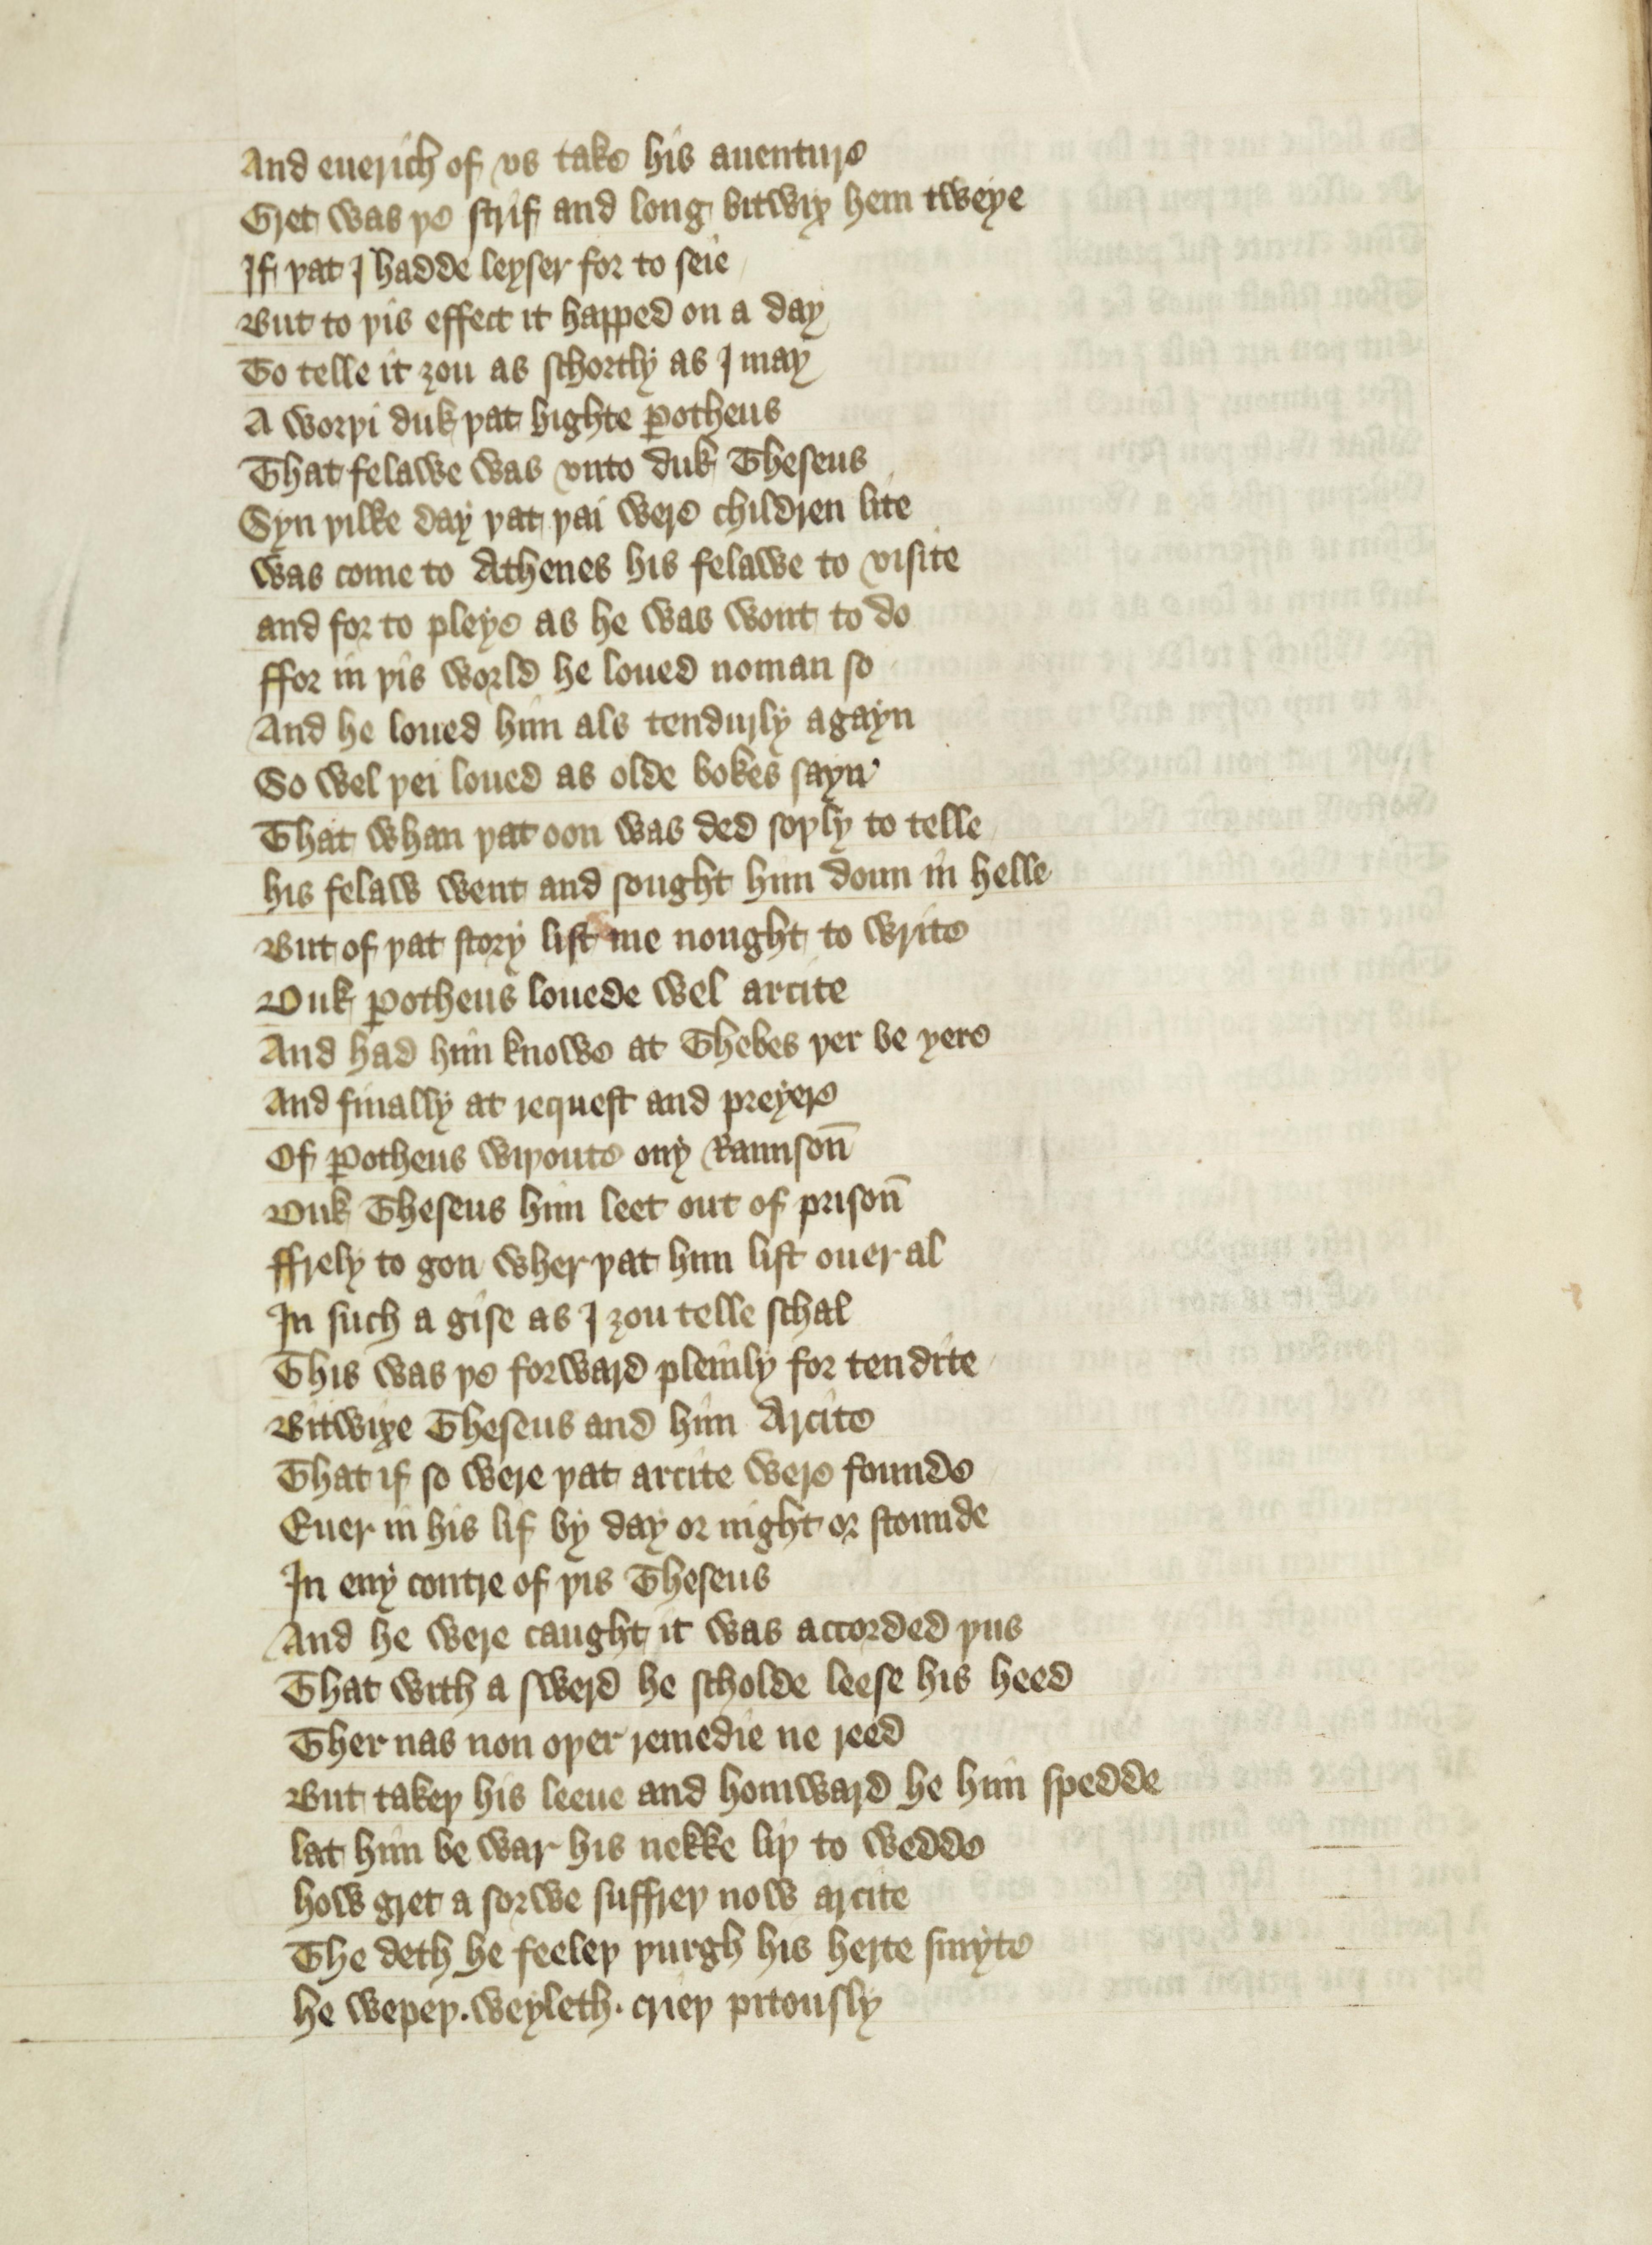 And euerich of vs take his auenture
Gret was þe strif and long bitwix hem tweye
If þat I hadde leyser for to seie
But to þis effect it happed on a day
To telle it ȝou as schortly as I may
A worþi duk þat highte ꝑotheus
That felawe was vnto duk Theseus
Syn þilke day þat þai were children lite
was come to Athenes his felawe to visite
and for to pleye as he was wont to do
ffor in þis world he loued noman so
And he loued him als tendurly agayn
So wel þei loued as olde bokes sayn
That whan þat oon was ded soþly to telle
his felaw went and sought him doun in helle
But of þat story list me nought to write
Duk ꝑotheus louede wel arcite
And had him knowe at Thebes ȝer be ȝere
And finally at request and preyere
Of ꝑotheus wiþoute ony Raunson̄
Duk Theseus him leet out of prison̄
ffrely to gon wher þat him list ouer al
In such a gise as I ȝou telle schal
This was þe forward pleinly for tendite
Bitwixe Theseus and him Arcite
That if so were þat arcite were founde
Euer in his lif by day or night or stounde
In eny contre of þis Theseus
And he were caught it was accorded þus
That with a swerd he scholde leese his heed
Ther nas non oþer remedie ne reed
But takeþ his leeue and homward he him spedde
lat him be war his nekke liþ to wedde
how gret a sorwe suffreþ now arcite
The deth he feeleþ þurgh his herte smyte
he wepeþ. weyleth. crieþ pitously